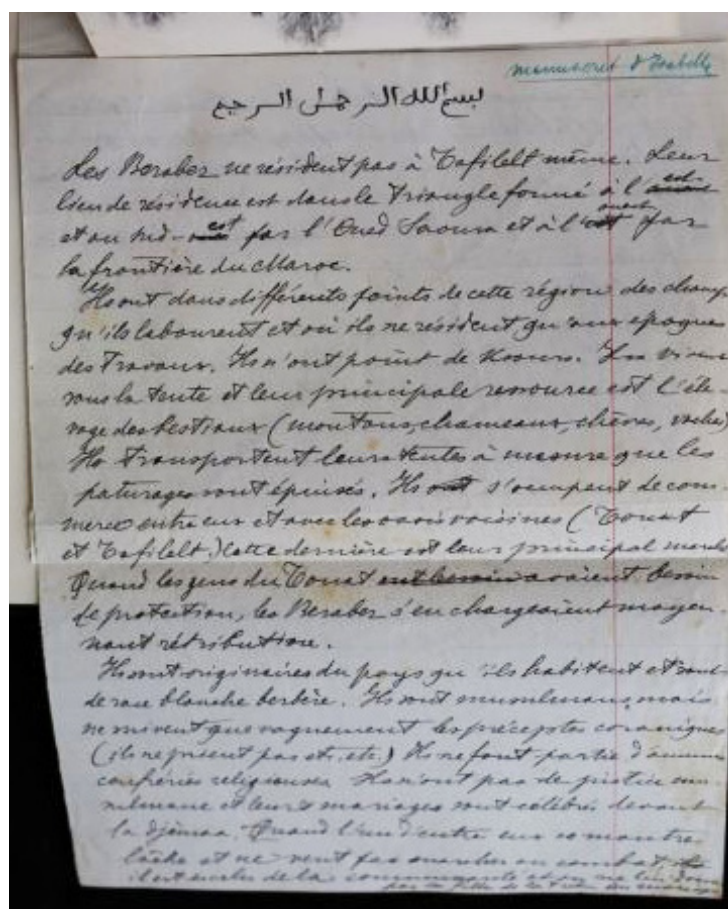 manuscrit d'Isabelle
بسم الله الرحمن الرحيم
Les Beraber ne résident pas à Tafilelt même. Leur
lieu de résidence est dans le triangle formé à l'est
et au sud-est par l'Oued Saoura et à l'ouest par
la frontière du Maroc.
Ils ont dans différents points de cette région des champs
qu'ils labourent et où ils ne résident qu'aux époques
des travaux. Ils n'ont point de Ksours. Ils vivent
sous la tente et leur principale ressource est l'éle
vage des bestiaux (moutons, chameaux, chèvres, vaches)
Ils transportent leurs tentes à mesure que les
paturages sont épuisés. Ils s'occupent de com-
merce entre eux et avec les oasis voisines (Touat
et Tafilelt.) Cette dernière est leur principal marché
Quand les gens du Touat avaient besoin
de protection, les Beraber s'en chargeaient moyen
nant rétribution.
Ils sont originaires du pays qu'ils habitent et sont
de race blanche berbère. Ils sont musulmans, mais
ne suivent que vaguement les préceptes coraniques
(ils ne prient pas etc, etc.) Ils ne font partie d'aucune
confréries religieuses. Ils n'ont pas de justice mu-
sulmane et leurs mariages sont célébrés devant
la djemaa. Quand l'un d'entre eux se montre
lâche et ne veut pas marcher au combat,
il est exclu de la communauté et on ne lui donne
pas de fille de la tribu en mariage